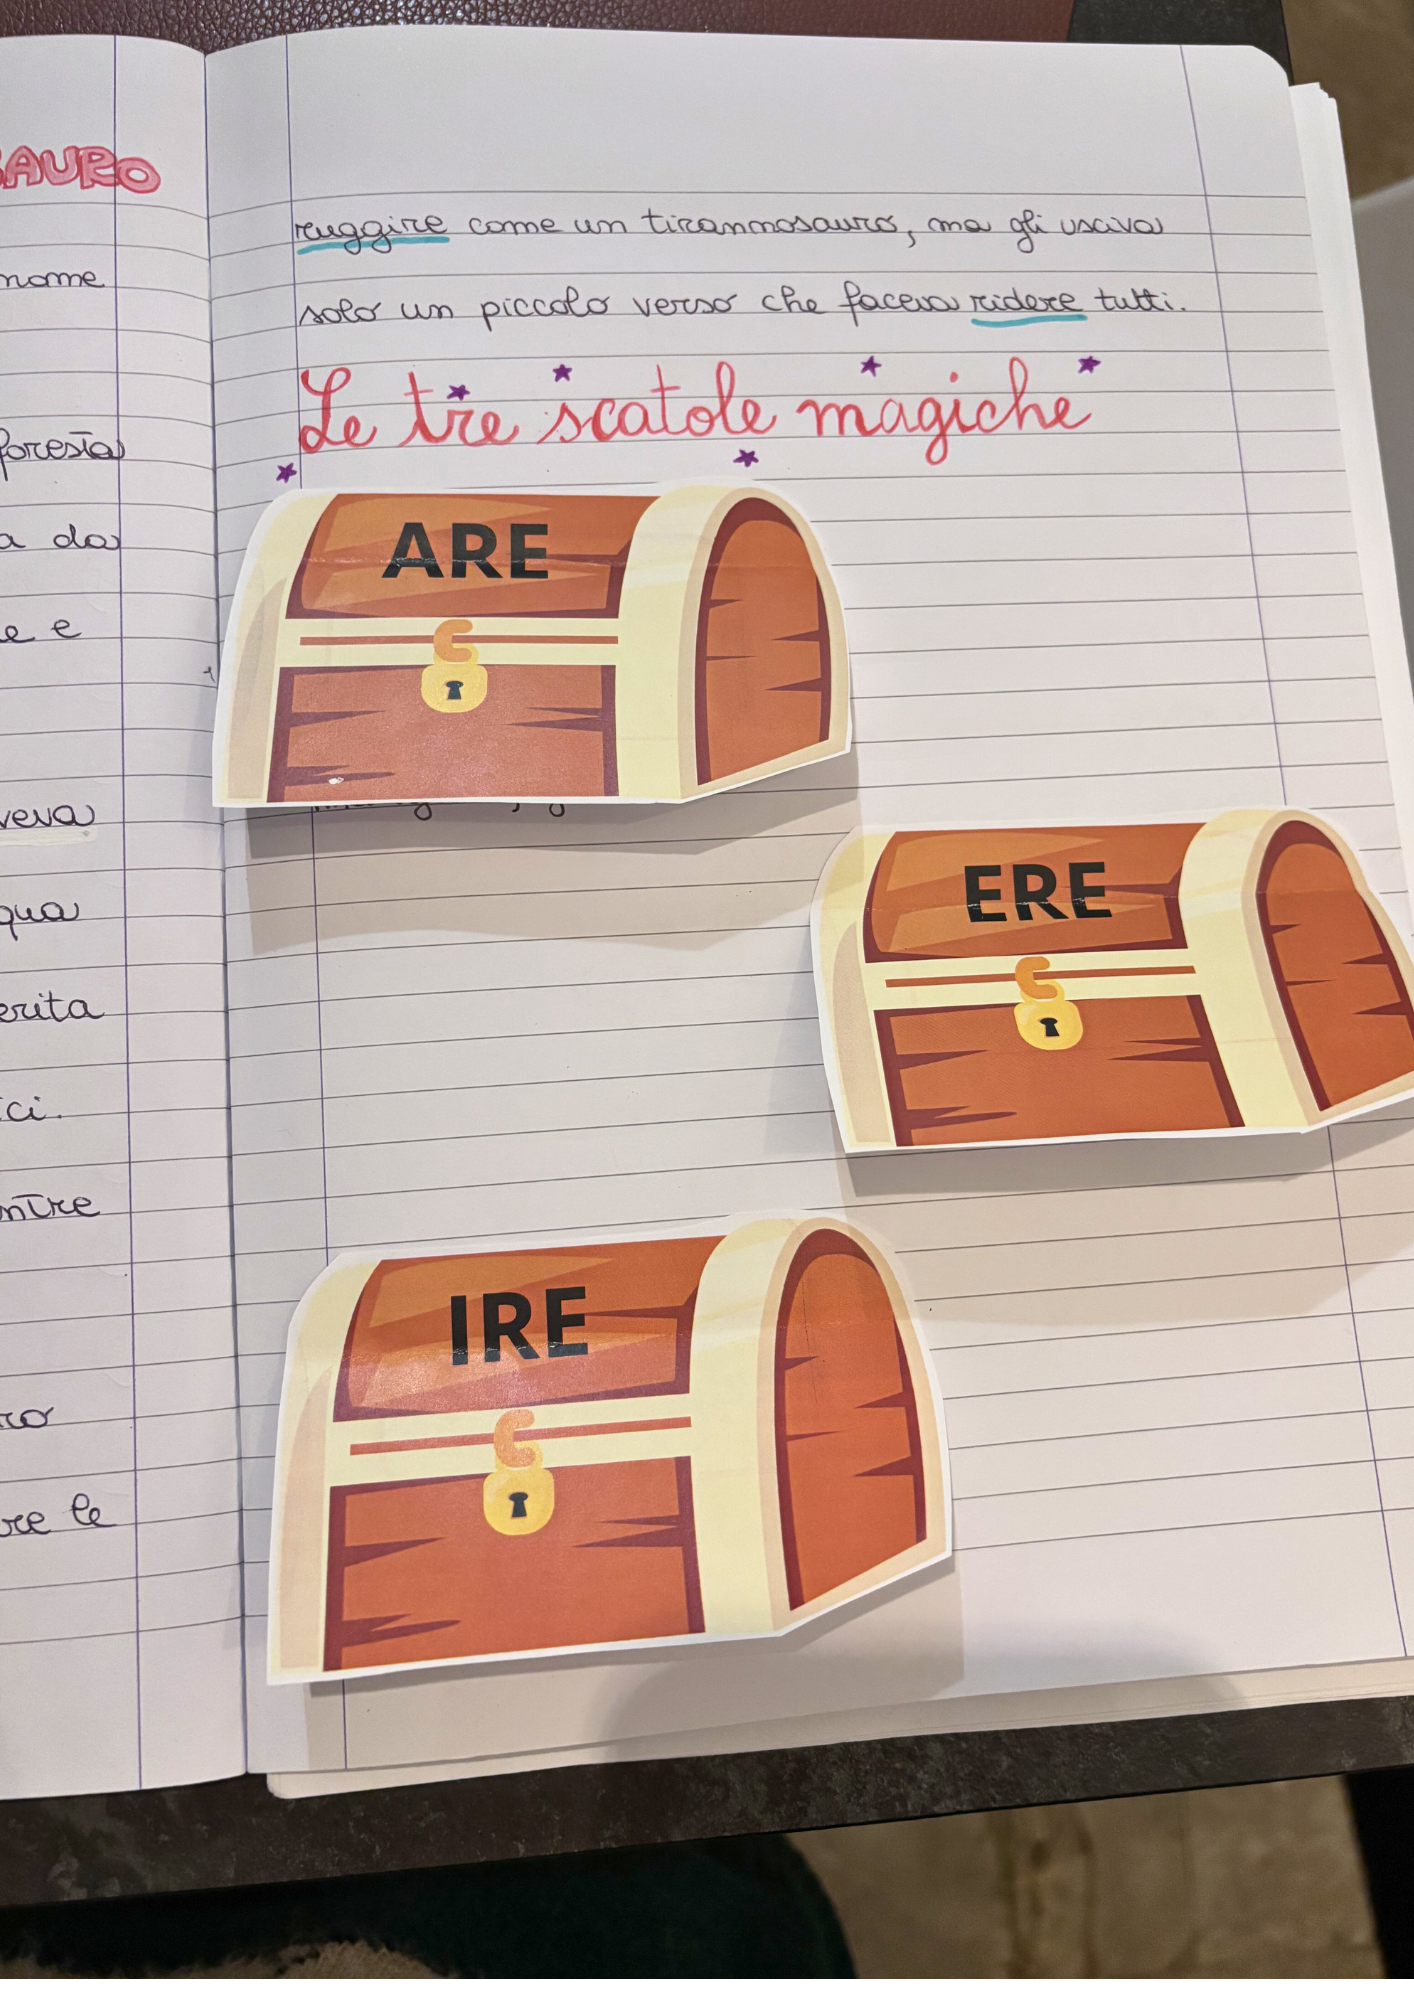 SAURO
nome
foresta
a da
e e
veva
qua
erita
ici.
ntre
ro
re le
ruggire come un tirannosauro, ma gli usciva
solo un piccolo verso che faceva ridere tutti.
Le tre scatole magiche
ARE
ERE
IRE